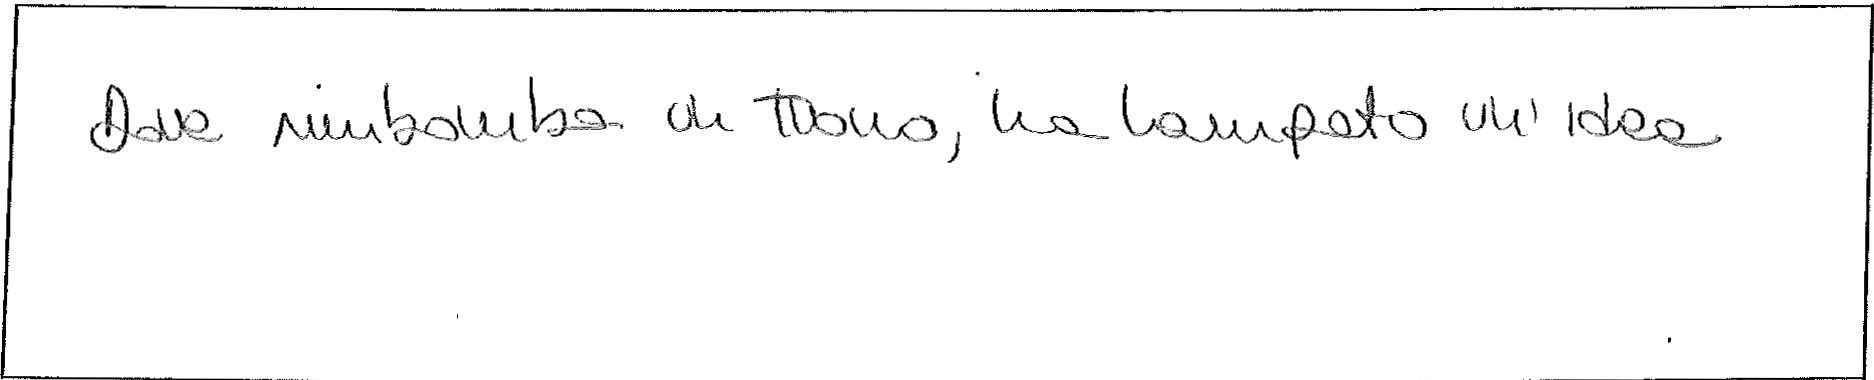 Dove rimbomba un tuono, ha lampato un' idea